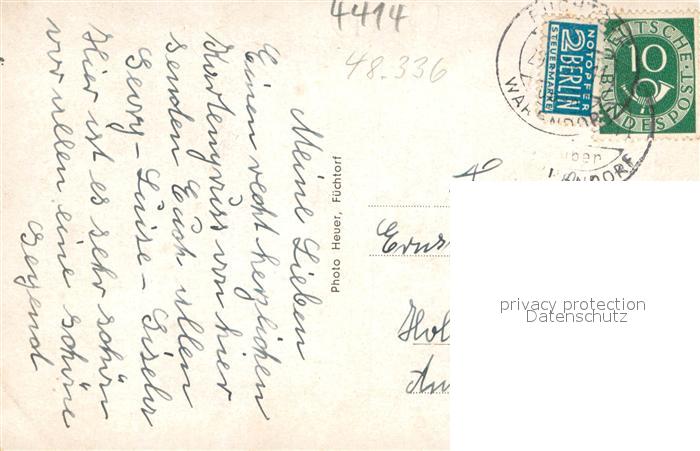 4414
48.336
Meine Lieben
Einen recht herzlichen
Kartengruss von hier
senden Euch allen
Luise - Gisela
Hier ist es sehr schön
vor allen eine schöne
Gegend
Photo Heuer, Füchtorf
NOTOPFER
2 BERLIN
STEUERMARKE
DEUTSCHE
BUNDESPOST
10
WARENDORF
über
Hol
privacy protection
Datenschutz